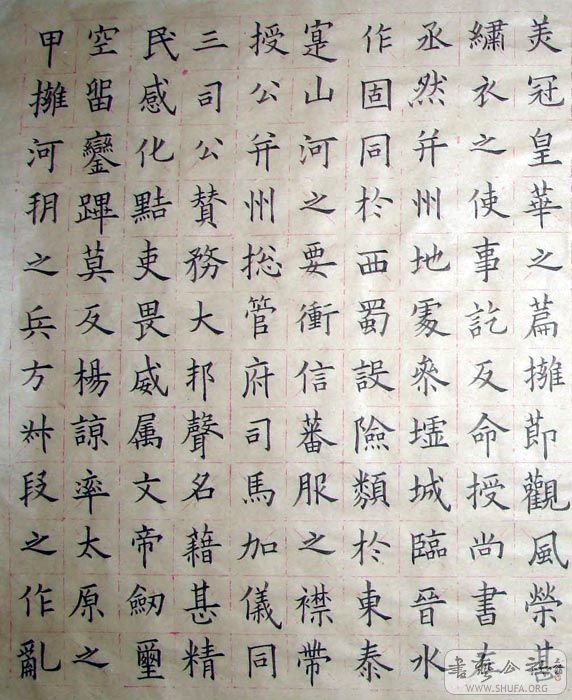 美冠皇華之篇擁節觀風榮甚
繡衣之使事訖反命授尚書右
丞然并州地處參墟城臨晉水
作固同於西蜀設險類於東泰
寔山河之要衝信蕃服之襟帶
授公并州揔管府司馬加儀同
三司公贊務大邦聲名藉甚精
民感化黠吏畏威属文帝劒璽
空留鑾蹕莫反楊諒率太原之
甲擁河朔之兵方叔段之作亂
WWW.SHUFA.ORG